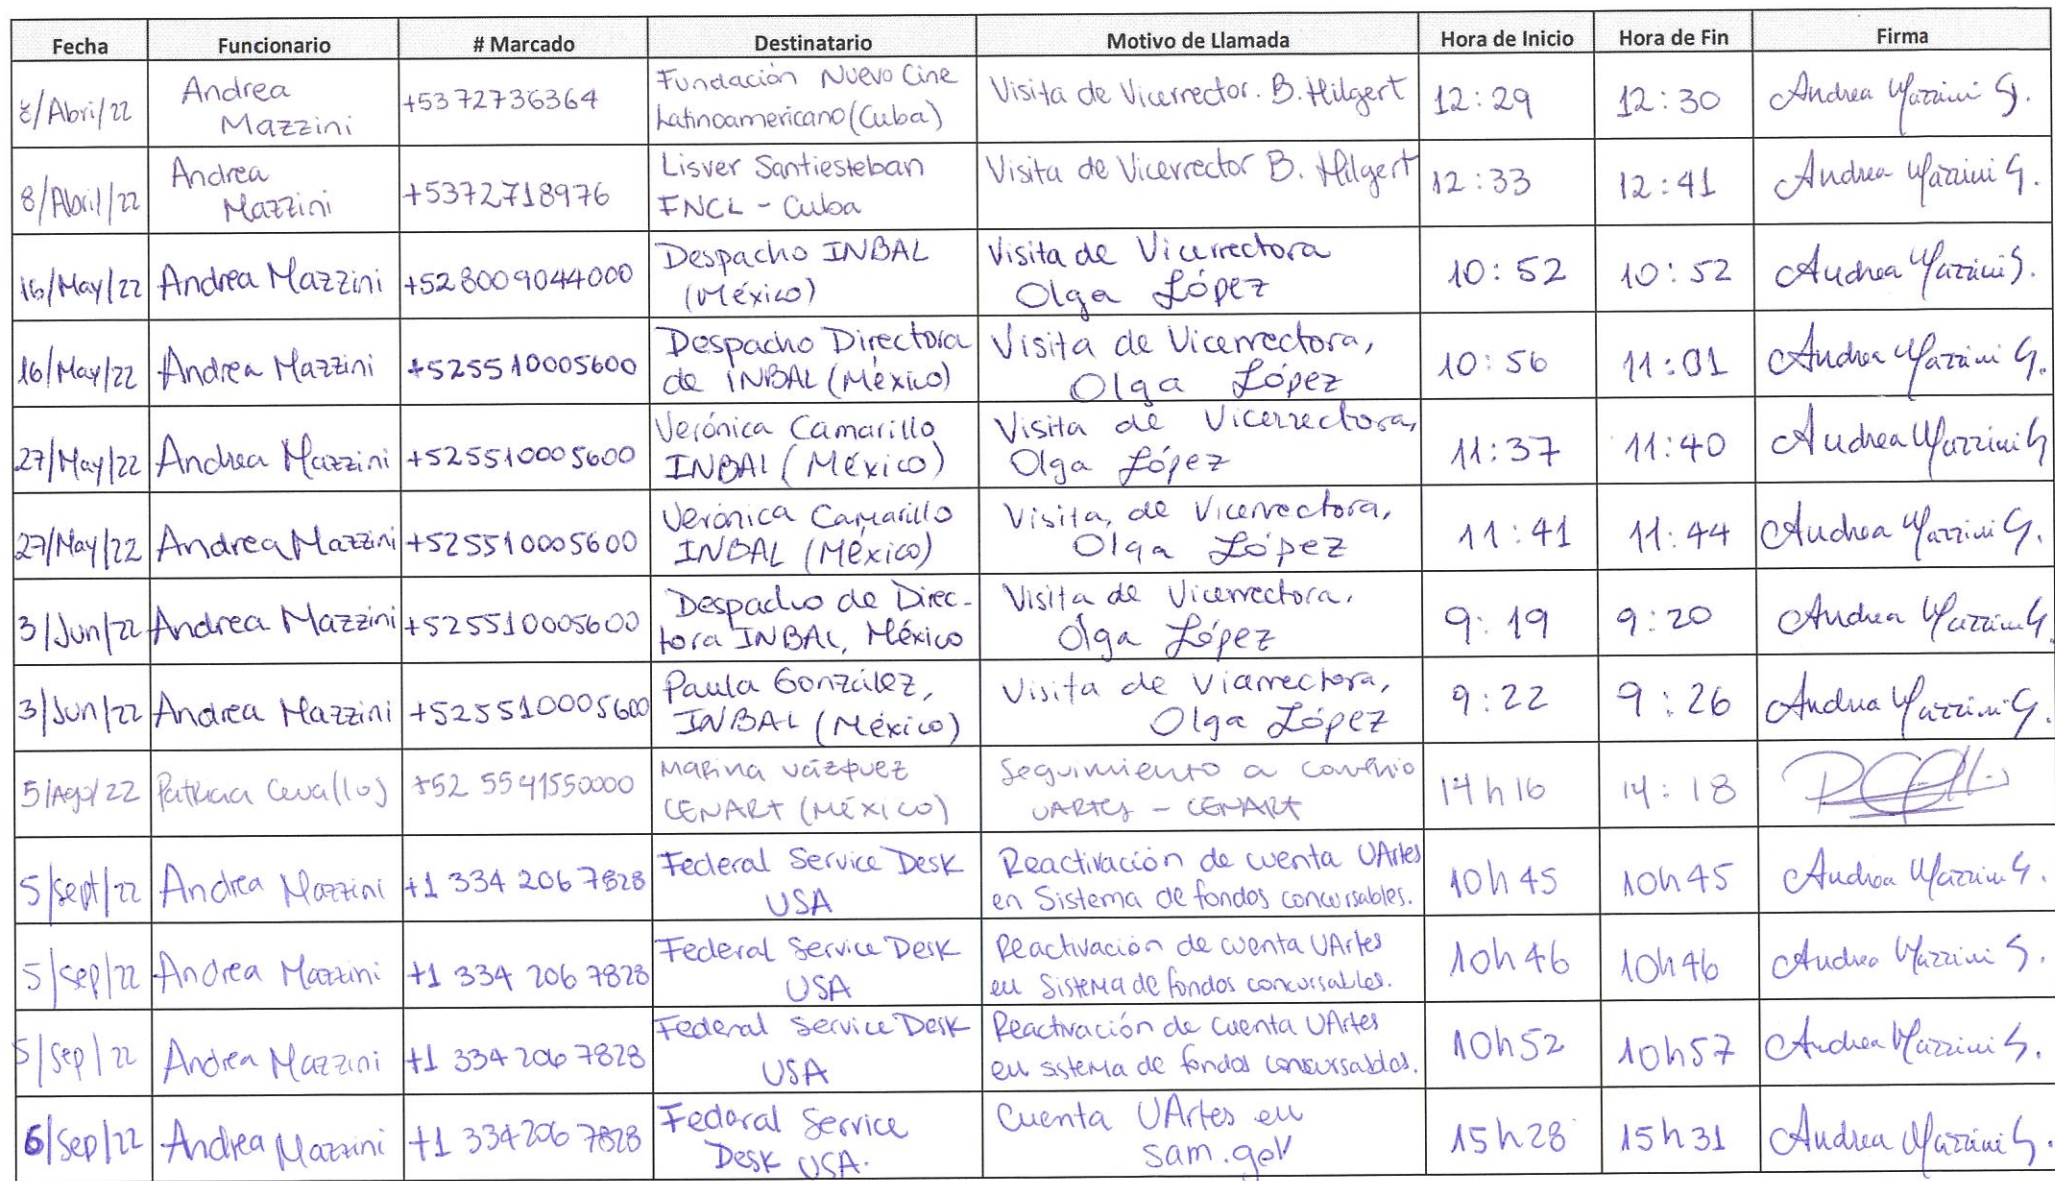 Fecha Funcionario # Marcado Destinatario Motivo de Llamada Hora de Inicio Hora de Fin Firma
/Abri/22 Andrea Mazzini +5372736364 Fundación Nuevo Cine Latinoamericano (Cuba) Visita de Vicerrector. B. Hilgert 12:29 12:30 Andrea Mazzini G.
8/Abril/22 Andrea Mazzini +5372718976 Lisver Santiesteban FNCL - Cuba Visita de Vicerrector B. Hilgert 12:33 12:41 Andrea Mazzini G.
16/May/22 Andrea Mazzini +528009044000 Despacho INBAL (México) Visita de Vicerrectora Olga López 10:52 10:52 Andrea Mazzini G.
16/May/22 Andrea Mazzini +525510005600 Despacho Directora de INBAL (México) Visita de Vicerrectora, Olga López 10:56 11:01 Andrea Mazzini G.
27/May/22 Andrea Mazzini +525510005600 Verónica Camarillo INBAL (México) Visita de Vicerrectora, Olga López 11:37 11:40 Andrea Mazzini G
27/May/22 Andrea Mazzini +525510005600 Verónica Camarillo INBAL (México) Visita, de Vicerrectora, Olga López 11:41 11:44 Andrea Mazzini G.
3/Jun/22 Andrea Mazzini +525510005600 Despacho de Direc- tora INBAL, México Visita de Vicerrectora. Olga López 9:19 9:20 Andrea Mazzini G.
3/Jun/22 Andrea Mazzini +525510005600 Paula González, INBAL (México) Visita de Vicerrectora, Olga López 9:22 9:26 Andrea Mazzini G.
5/Ago/22 Patricia Cevallos +52 5541550000 Marina Vázquez CENART (México) Seguimiento a convenio UARTES - CENART 14h16 14:18
5/sept/22 Andrea Mazzini +1 334 206 7828 Federal Service Desk USA Reactivación de cuenta UArtes en Sistema de fondos concursables. 10h45 10h45 Andrea Mazzini G.
5/sep/22 Andrea Mazzini +1 334 206 7828 Federal Service Desk USA Reactivación de cuenta UArtes en Sistema de fondos concursables. 10h46 10h46 Andrea Mazzini G.
5/sep/22 Andrea Mazzini +1 334 206 7828 Federal Service Desk USA Reactivación de cuenta UArtes en sistema de fondos concursables. 10h52 10h57 Andrea Mazzini G.
6/sep/22 Andrea Mazzini +1 334 206 7828 Federal Service Desk USA. Cuenta UArtes en sam.gov 15h28 15h31 Andrea Mazzini G.